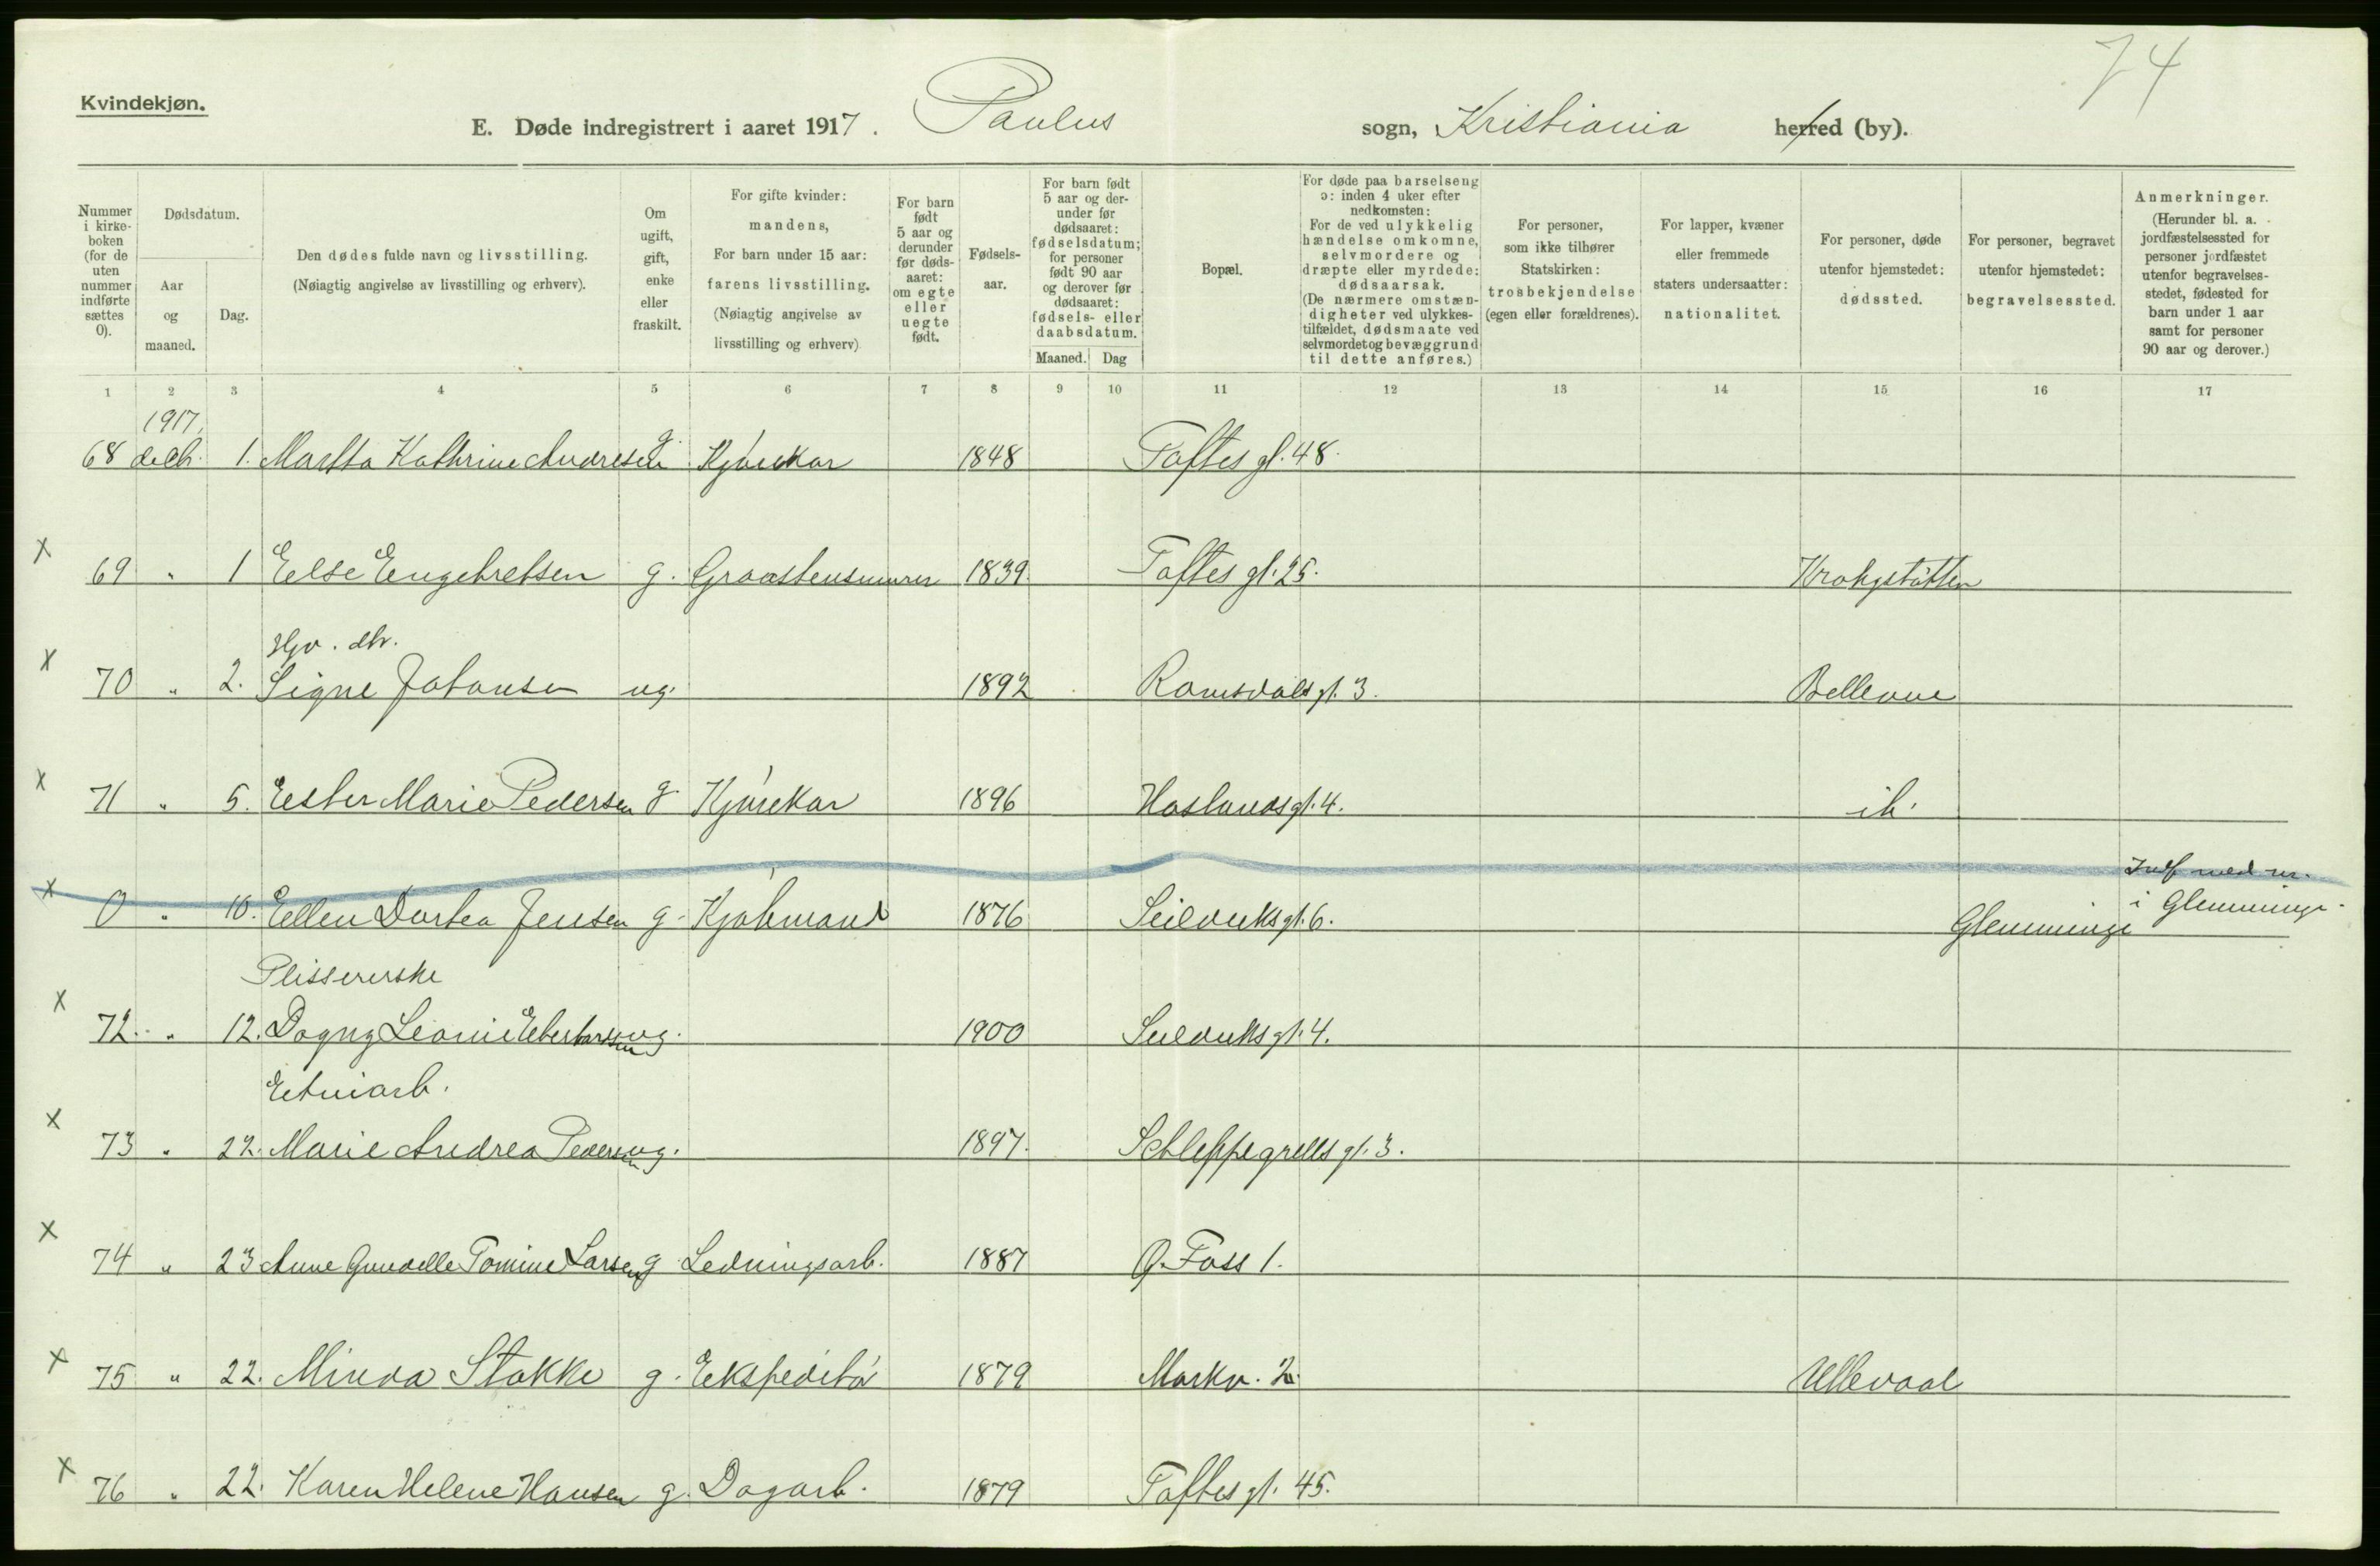 74
Kvindekjøn.
E. Døde indregistrert i aaret 1917. Paulus sogn, Kristiania herred (by).
Nummer i kirke- boken (for de uten nummer indførte sættes 0).
Dødsdatum.
Aar og maaned.
Dag.
Den dødes fulde navn og livsstilling.
(Nøiagtig angivelse av livsstilling og erhverv).
Om ugift, gift, enke eller fraskilt.
For gifte kvinder: mandens,
For barn under 15 aar: farens livsstilling.
(Nøiagtig angivelse av livsstilling og erhverv)
For barn født 5 aar og derunder før døds- aaret: om egte eller uegte født.
Fødsels- aar.
For barn født 5 aar og der- under før dødsaaret: fødselsdatum; for personer født 90 aar og derover før dødsaaret: fødsels- eller daabsdatum.
Maaned. Dag
Bopæl.
For døde paa barselseng ɔ: inden 4 uker efter nedkomsten:
For de ved ulykkelig hændelse omkomne, selvmordere og dræpte eller myrdede: dødsaarsak.
(De nærmere omstæn- digheter ved ulykkes- tilfældet, dødsmaate ved selvmordet og bevæggrund til dette anføres.)
For personer, som ikke tilhører Statskirken: trosbekjendelse (egen eller forældrenes).
For lapper, kvæner eller fremmede staters undersaatter: nationalitet.
For personer, døde utenfor hjemstedet: dødssted.
For personer, begravet utenfor hjemstedet: begravelsessted.
Anmerkninger.
(Herunder bl. a. jordfæstelsessted for personer jordfæstet utenfor begravelses- stedet, fødested for barn under 1 aar samt for personer 90 aar og derover.)
1 2 3 4 5 6 7 8 9 10 11 12 13 14 15 16 17
1917.
68 decb. 1. Martha Kathrine Andresen g. Kjørekar 1848 Toftes gt. 48.
x 69 " 1 Else Engebretsen g. Graastensmurer 1839. Toftes gt. 25. Krohgstøtten
Hjv. dtr.
x 70 " 2. Signe Johansen ug. 1892 Ramsdals gt. 3. Bellevue
x 71 " 5. Ester Marie Pedersen g. Kjørekar 1896 Haslunds gt. 4. ib.
Indf. med nr.
x 0 " 10. Ellen Dortea Jensen g. Kjøbmand 1876 Seilduks gt. 6. Glemminge i Glemminge.
Plissererske
x 72. " 12. Dagny Leonie Ebertarssen ug. 1900 Seilduks gt. 4.
Etuiarb.
x 73 " 22. Marie Andrea Pedersen ug. 1897. Schleppegrells gt. 3.
x 74 " 23 Anne Gunelle Tomine Larsen g Ledningsarb. 1887 Ø. Foss 1.
x 75 " 22. Minda Stakke g. Ekspeditør 1879 Markv. 2. Ullevaal
x 76 " 22. Karen Helene Hansen g. Dagarb. 1879 Toftes gt. 45.